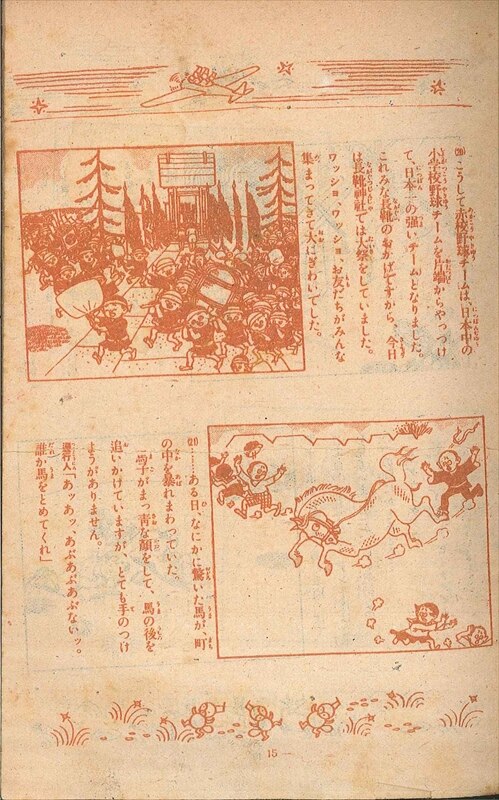 (20) こうして赤柿野球チームは、日本中の
小学校野球チームを片端からやっつけ
て、日本一の強いチームとなりました。
これみな長靴のおかげですから、今日
は長靴神社では大祭をしていました。
ワッショ、ワッショ、お友だちがみんな
集まってきて大にぎわいでした。
(21) ……ある日、なにかに驚いた馬が、町
の中を暴れまわっていた。
馬子がまっ靑な顏をして、馬の後を
追いかけていますが、とても手のつけ
ようがありません。
通行人「あッあッ、あぶあぶあぶないッ。
誰か馬をとめてくれ」
15